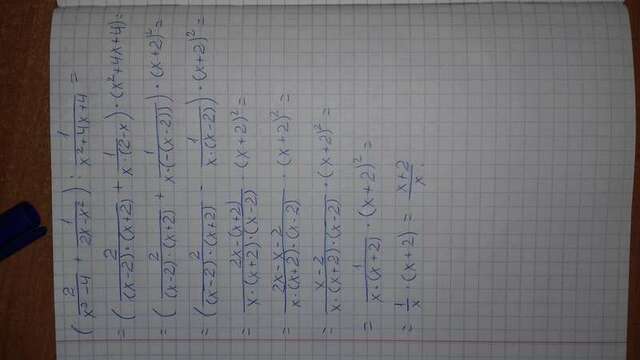 (2/(x²-4) + 1/(2x-x²)) : 1/(x²+4x+4) =
= (2/((x-2)·(x+2)) + 1/(x·(2-x)))·(x²+4x+4) =
= (2/((x-2)·(x+2)) + 1/(x·(-(x-2))))·(x+2)² =
= (2/((x-2)·(x+2)) - 1/(x·(x-2)))·(x+2)² =
= (2x-(x+2))/(x·(x+2)·(x-2)) (x+2)² =
= (2x-x-2)/(x·(x+2)·(x-2))·(x+2)² =
= (x-2)/(x·(x+2)·(x-2))·(x+2)² =
= 1/(x·(x+2))·(x+2)² =
= 1/x·(x+2) = (x+2)/x.